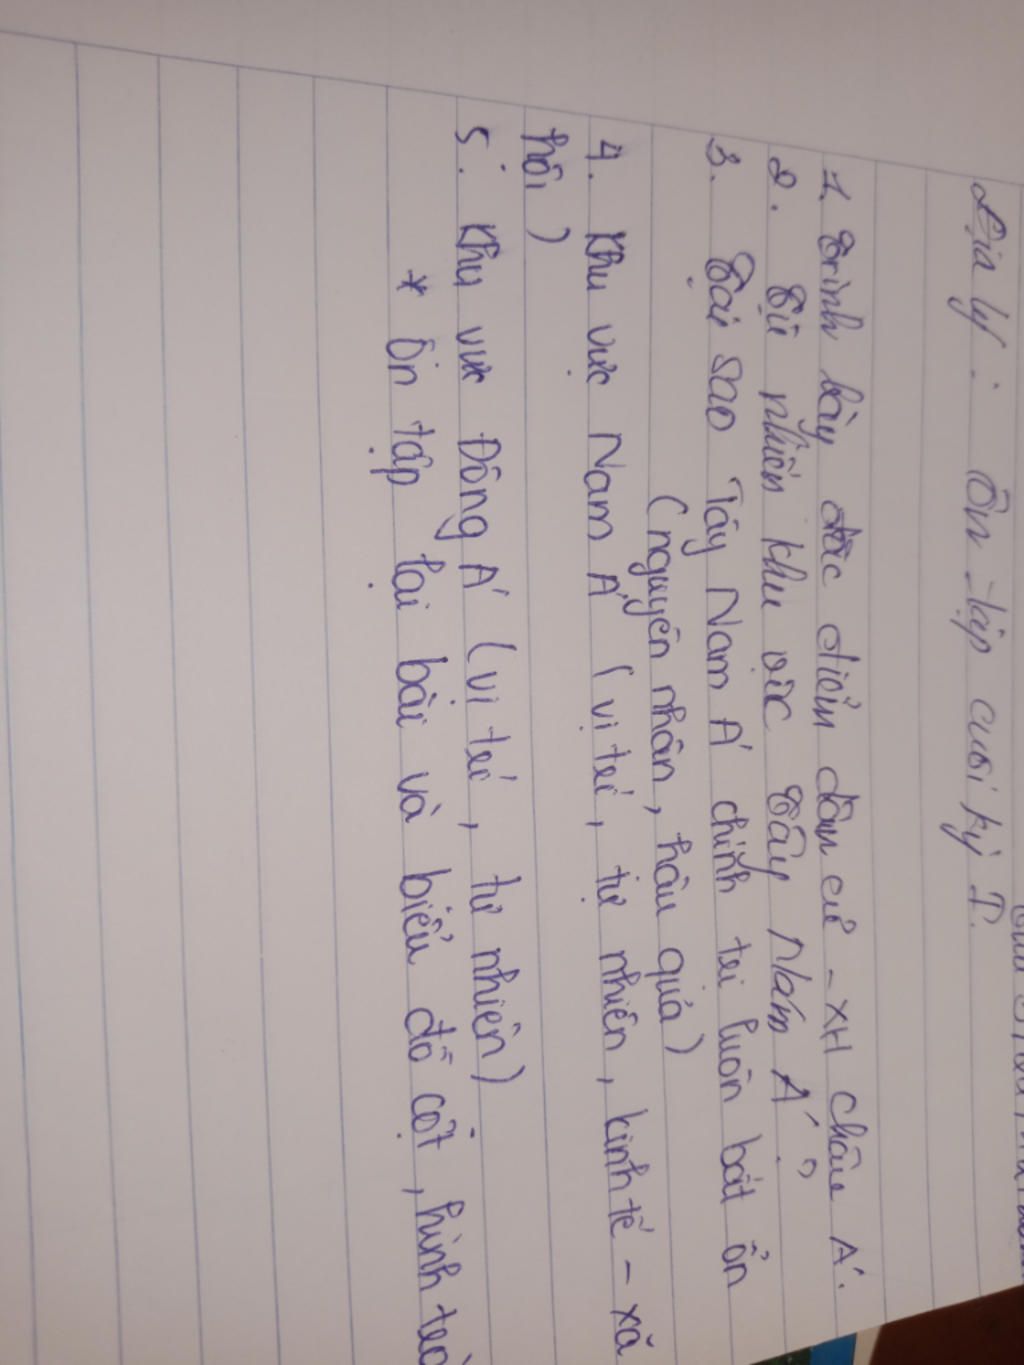 Địa lý : Ôn tập cuối kỳ I.
1. Trình bày đặc điểm dân cư - XH châu Á.
2. Tự nhiên khu vực Tây Nam Á ?
3. Tại sao Tây Nam Á chính trị luôn bất ổn
(nguyên nhân, hậu quả)
4. Khu vực Nam Á (vị trí, tự nhiên, kinh tế - xã
hội)
5. Khu vực Đông Á (vị trí, tự nhiên)
* Ôn tập lại bài và biểu đồ cột, hình